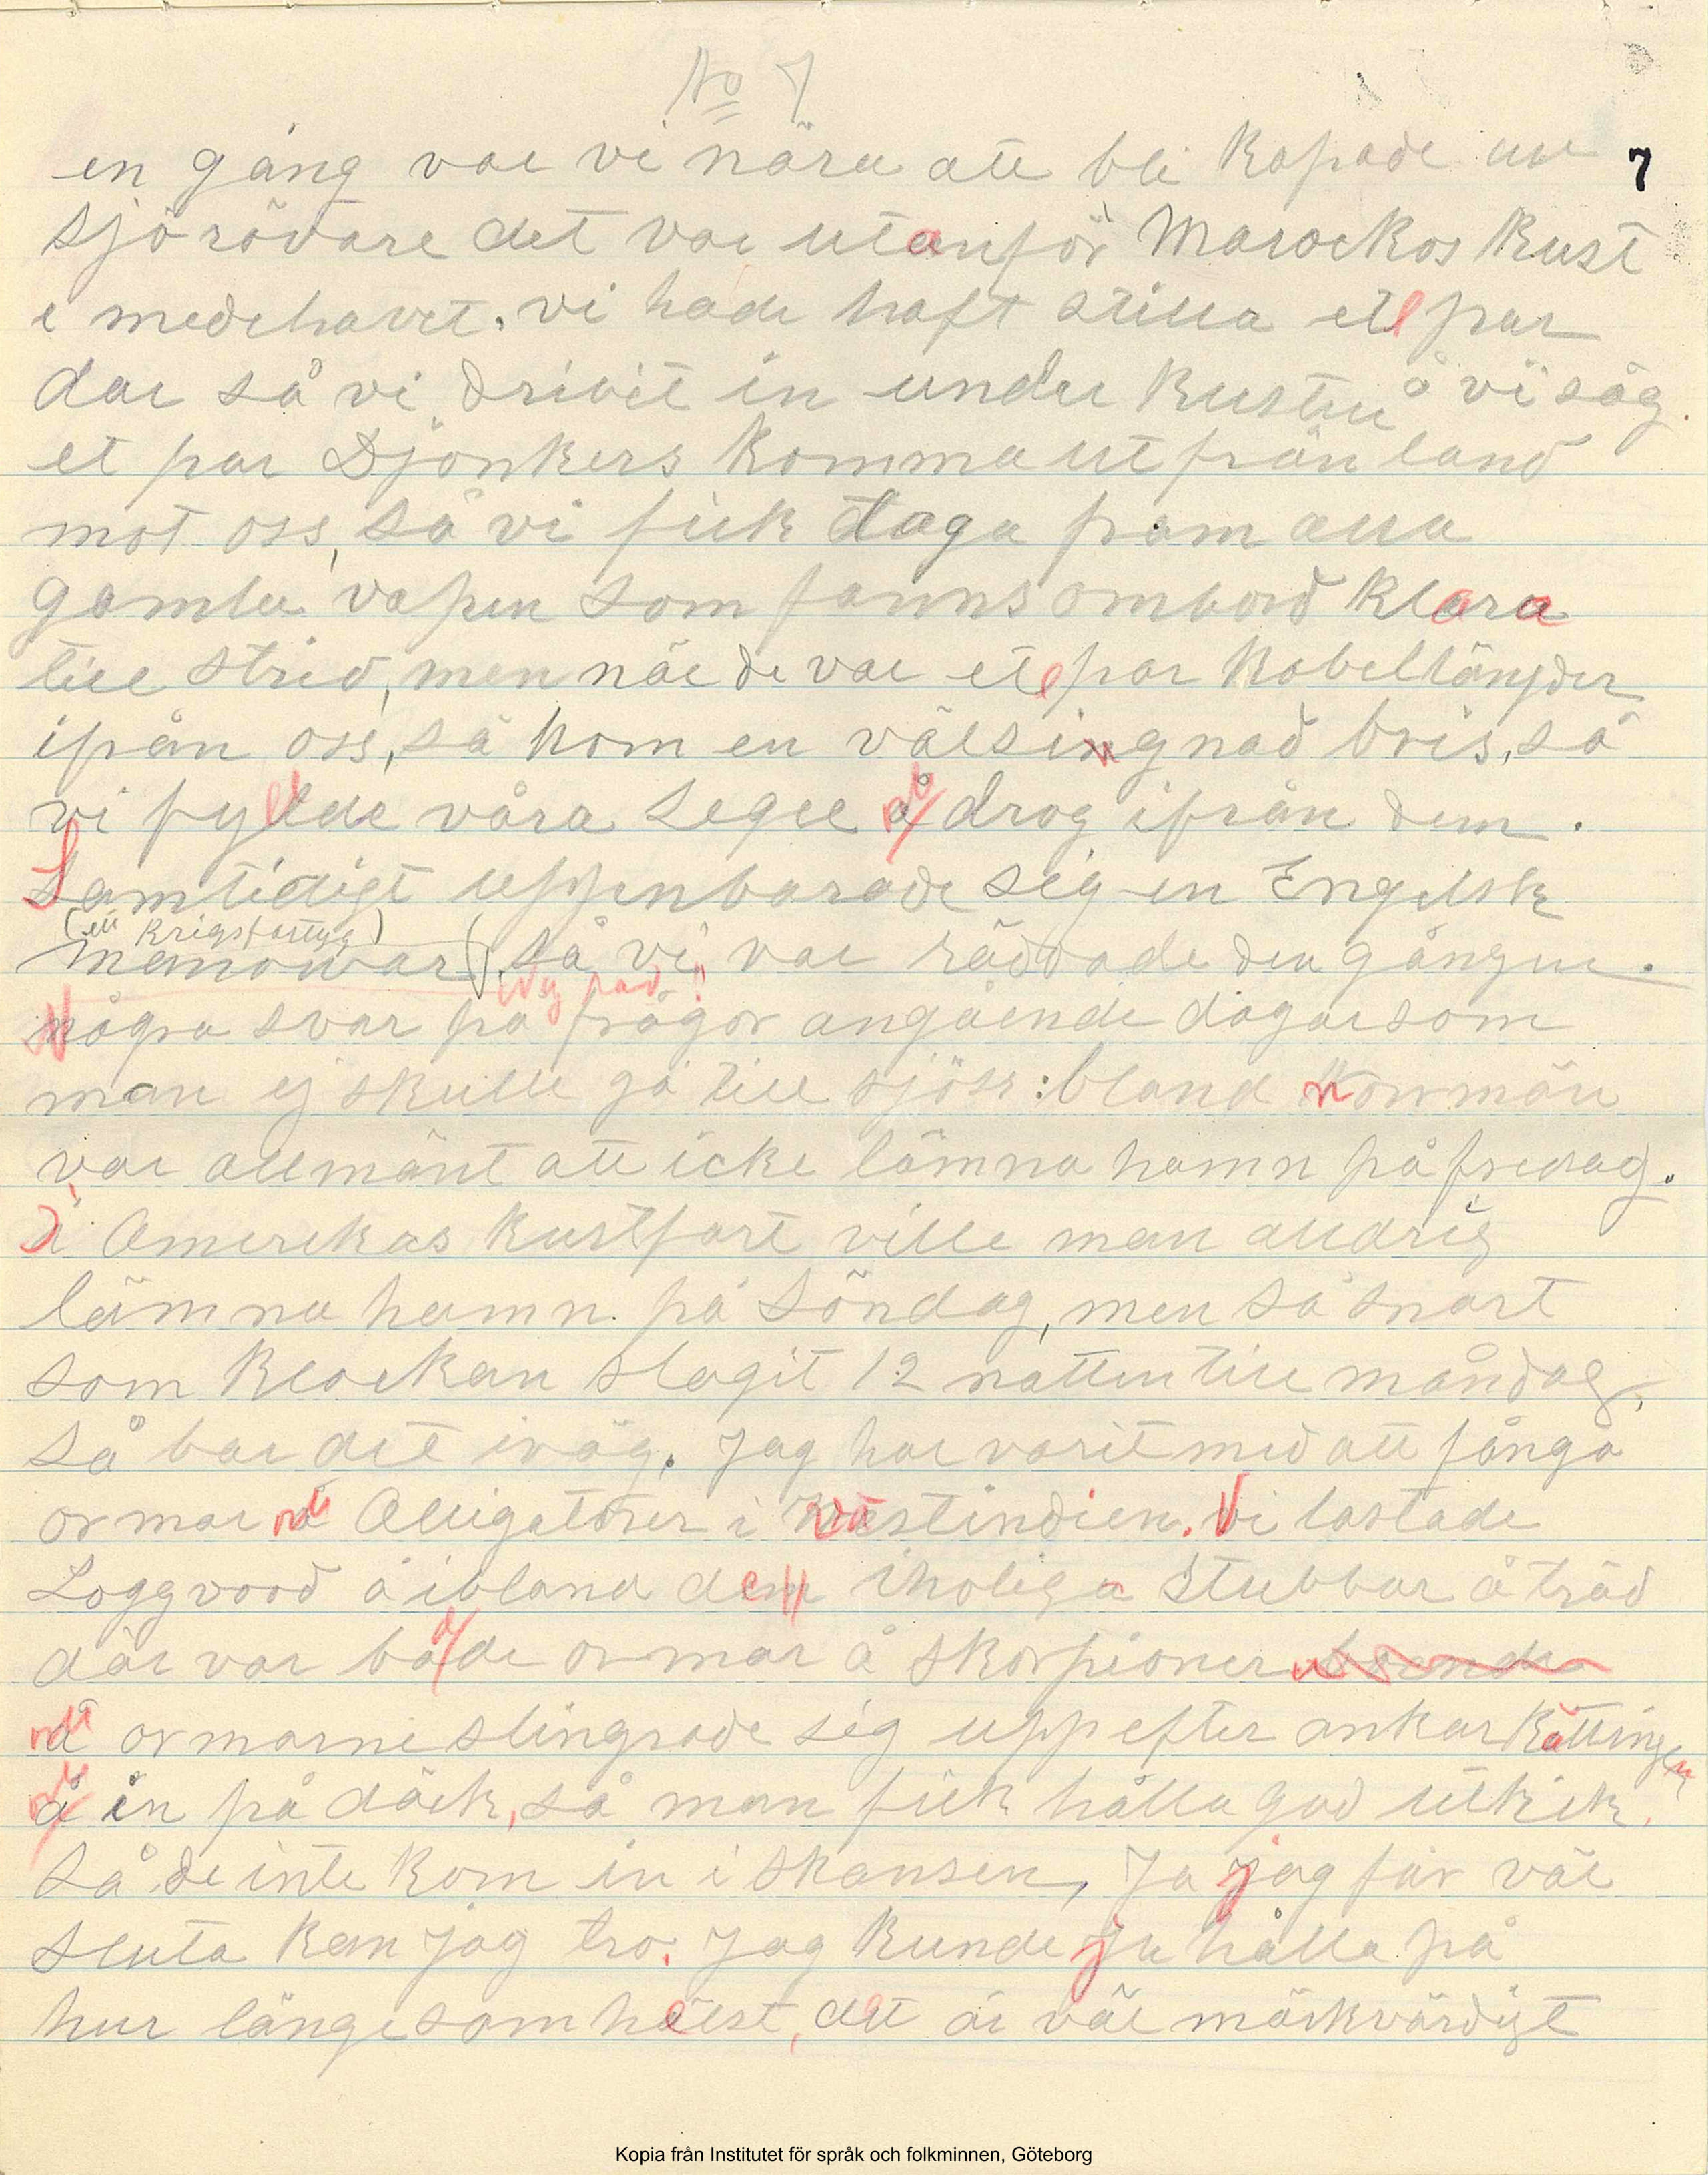 No 7
7
en gång var vi nära att bli kapade av
sjörövare det var utanför Marockos kust
i medelhavet. vi hade haft stilla ett par
dar så vi drivit in under kusten å vi såg
et par Djonkers komma ut från land
mot oss, så vi fick taga fram alla
gamla vapen som fanns ombord klara
till strid, men när de var ett par kabellängder
ifrån oss, så kom en välsingnad bris, så
vi fyllde våra segel å drog ifrån dem.
Samtidigt uppenbarade sig en Engelsk
(ett krigsfartyg)
manowar så vi var räddade den gången.
Ny rad!
Några svar på frågor angående dagar som
man ej skulle gå till sjöss: bland norrmän
var allmänt att icke lämna hamn på fredag.
I Amerikas kustfart ville man aldrig
lämna hamn på söndag, men så snart
som klockan slagit 12 natten till måndag,
så bar det iväg. Jag har varit med att fånga
ormar å Alligatorer i Västindien. Vi lastade
Loggvood å ibland den iholiga stubbar å träd
där var både ormar å skorpioner
å ormarne slingrade sig upp efter ankarkättingen
å in på däck, så man fick hålla god utkik,
så de inte kom in i skansen, Ja jag får väl
sluta kan jag tro. Jag kunde ju hålla på
hur länge som helst, det är väl märkvärdigt
Kopia från Institutet för språk och folkminnen, Göteborg